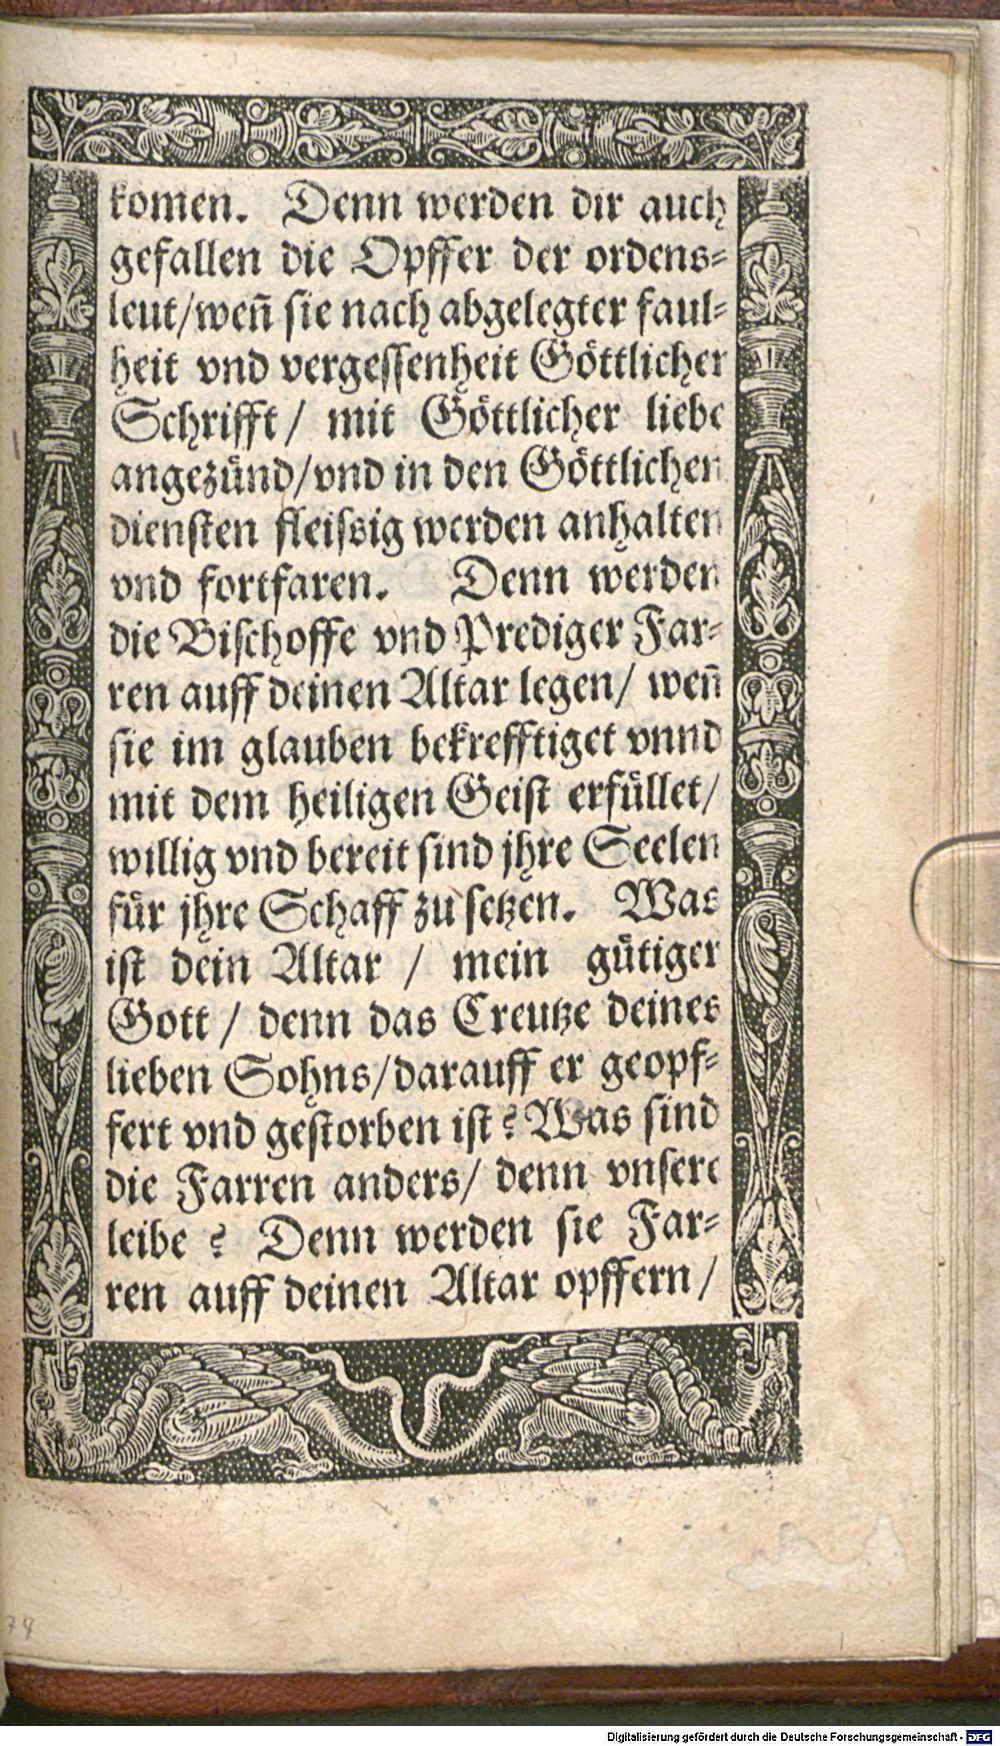 komen. Denn werden dir auch
gefallen die Opffer der ordens-
leut/wen̄ sie nach abgelegter faul-
heit vnd vergessenheit Göttlicher
Schrifft/ mit Göttlicher liebe
angezünd/vnd in den Göttlichen
diensten fleissig werden anhalten
vnd fortfaren. Denn werden
die Bischoffe vnd Prediger Far-
ren auff deinen Altar legen/ wen̄
sie im glauben bekrefftiget vnnd
mit dem heiligen Geist erfüllet/
willig vnd bereit sind jhre Seelen
für jhre Schaff zu setzen. Was
ist dein Altar / mein gütiger
Gott / denn das Creutze deines
lieben Sohns/darauff er geopf-
fert vnd gestorben ist? Was sind
die Farren anders/ denn vnsere
leibe ? Denn werden sie Far-
ren auff deinen Altar opffern/
74
Digitalisierung gefördert durch die Deutsche Forschungsgemeinschaft - DFG